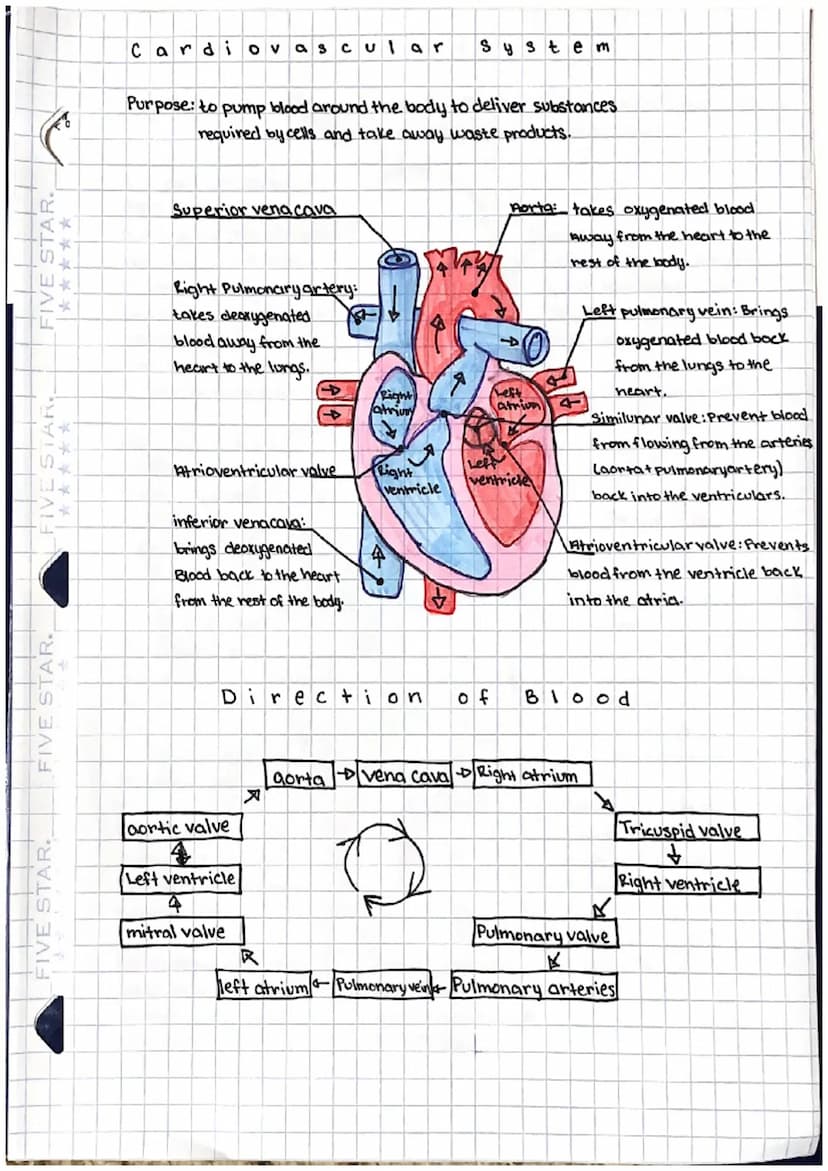 Cardiovascular System
Purpose: to pump blood around the body to deliver substances
required by cells and take away waste products.
Superior vena cava
Aorta: takes oxygenated blood
away from the heart to the
rest of the body.
Right Pulmonary artery:
takes deoxygenated
blood away from the
heart to the lungs.
Left pulmonary vein: Brings
oxygenated blood back
from the lungs to the
heart.
Similunar valve: Prevent blood
from flowing from the arteries
(aorta + pulmonary artery)
back into the ventriculars.
Right
atrium
Left
atrium
Right
ventricle
Left
ventricle
Atrioventricular valve
inferior vena cava:
brings deoxygenated
Blood back to the heart
from the rest of the body.
Atrioventricular valve: Prevents
blood from the ventricle back
into the atria.
Direction of Blood
aorta
vena cava
Right atrium
Tricuspid valve
Right ventricle
Pulmonary valve
Pulmonary arteries
Pulmonary vein
left atrium
mitral valve
Left ventricle
aortic valve
FIVE STAR.
FIVE STAR.
FIVE STAR.
FIVE STAR.